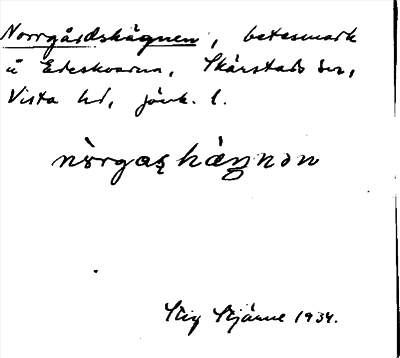 Norrgårdshägnen, betesmark
å Edeskvarna, Skärstads sn,
Vista hd, Jönk. l.
nòrgaʂhàŋnən
Stig Stjärne 1934.